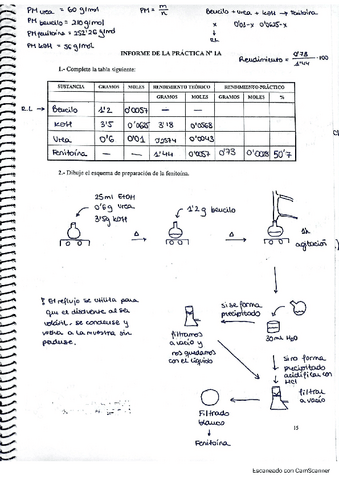 PM urea = 60 g/mol
PM bencilo = 210 g/mol
PM fenitoína = 252'26 g/mol
PM KOH = 56 g/mol
PM = m/n
Bencilo + urea + KOH → Fenitoína
x 0'01-x 0'0625-x
R.L
INFORME DE LA PRÁCTICA Nº 1A
Rendimiento = 0'73/1'44 · 100
1.- Complete la tabla siguiente:
SUSTANCIA GRAMOS MOLES RENDIMIENTO TEÓRICO RENDIMIENTO PRÁCTICO
GRAMOS MOLES GRAMOS MOLES %
R.L → Bencilo 1'2 0'0057 - -
KOH 3'5 0'0625 3'18 0'0568
Urea 0'6 0'01 0'0043
Fenitoína - - 1'44 0'0057 0'73 50'7
2.- Dibuje el esquema de preparación de la fenitoína.
25 ml EtOH
0'6 g urea
3'5 g KOH
1'2 g bencilo
Δ
Δ
1h
agitación
El reflujo se utiliza para
que el disolvente al ser
volátil, se condense y
vuelva a la muestra sin
perderse.
si se forma
precipitado
30 ml H2O
filtramos
a vacío y
nos quedamos
con el líquido
si no forma
precipitado
acidificar con
HCl
filtrar
a vacío
Filtrado
blanco
↓
Fenitoína
15
Escaneado con CamScanner